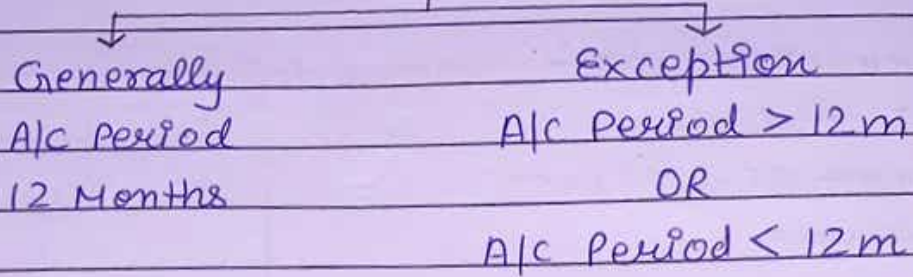 Generally
A/C Period
12 Months
Exception
A/C Period > 12m
OR
A/C Period < 12m